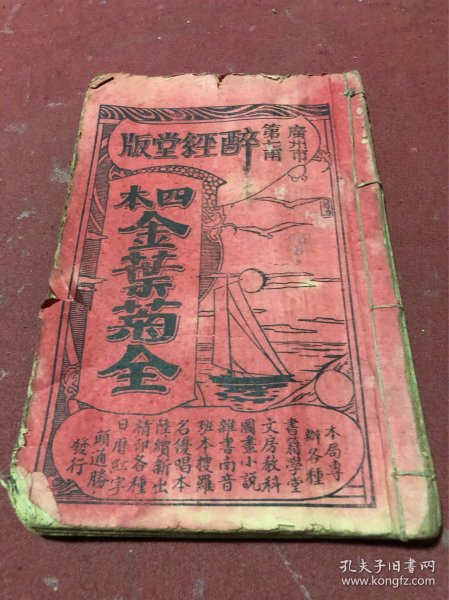 廣州市
第七甫
醉經堂版
四本
金葉菊全
本局專
辦各種
書籍學堂
文房教科
圖畫小說
雜書南音
班本搜羅
名優唱本
陸續新出
精印各種
日曆紅字
頭通勝
發行
孔夫子旧书网
www.kongfz.com